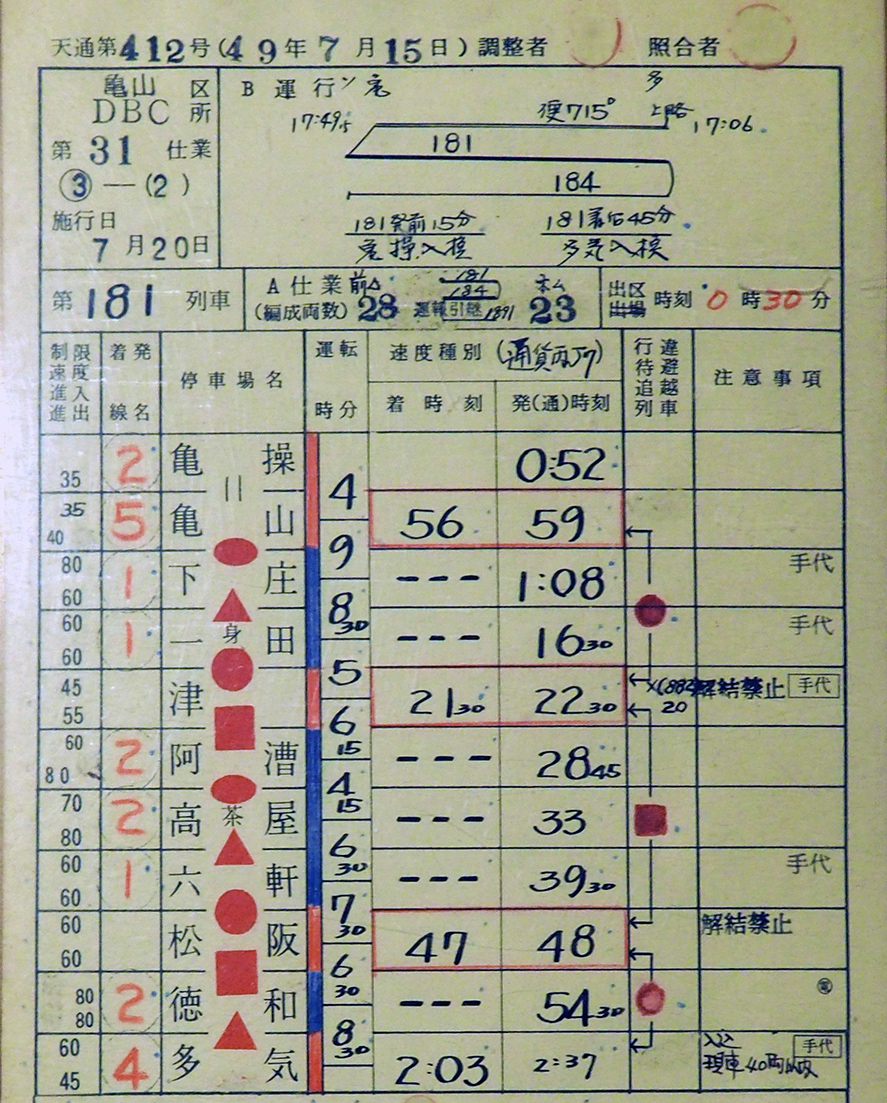 天通第412号(49年7月15日)調整者 照合者
亀山 区
DBC 所
第31 仕業
③—(2)
施行日
7月20日
B 運行
多
便715° 上路
17:49,5 17:06
181
184
181発前15分 181着后45分
亀操入換 多気入換
第181列車
A 仕業
(編成両数) 28 運報引継 23
181
184
1891
出区
出場
時刻 0時30分
制限速度進入進出
着発線名
停車場名
運転時分
速度種別 (通貨丙ｱﾘ)
着時刻
発(通)時刻
行違待避追越列車
注意事項
35 2 亀操 0:52
4
35 40 5 亀山 56 59
9
80 60 1 下庄 --- 1:08 手代
8 30
60 60 1 一身田 --- 16 30 手代
5
45 55 津 21 30 22 30 20 解結禁止 手代
6 15
60 80 2 阿漕 --- 28 45
4 15
70 80 2 高茶屋 --- 33
6 30
60 60 1 六軒 --- 39 30 手代
7 30
60 60 松阪 47 48 解結禁止
6 30
80 80 2 徳和 --- 54 30
8 30
60 45 4 多気 2:03 2:37 手代
現車40両以内